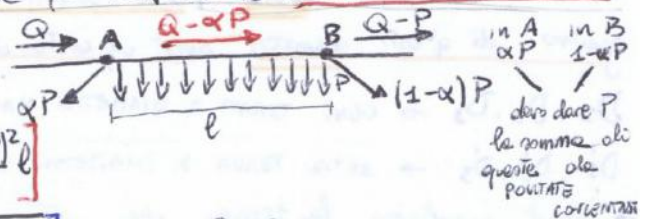 Q A Q-αP B Q-P in A in B
αP 1-αP
αP P (1-α)P
l
devo dare P
la somma di
queste da
PORTATE
CONCENTRATE
)²l